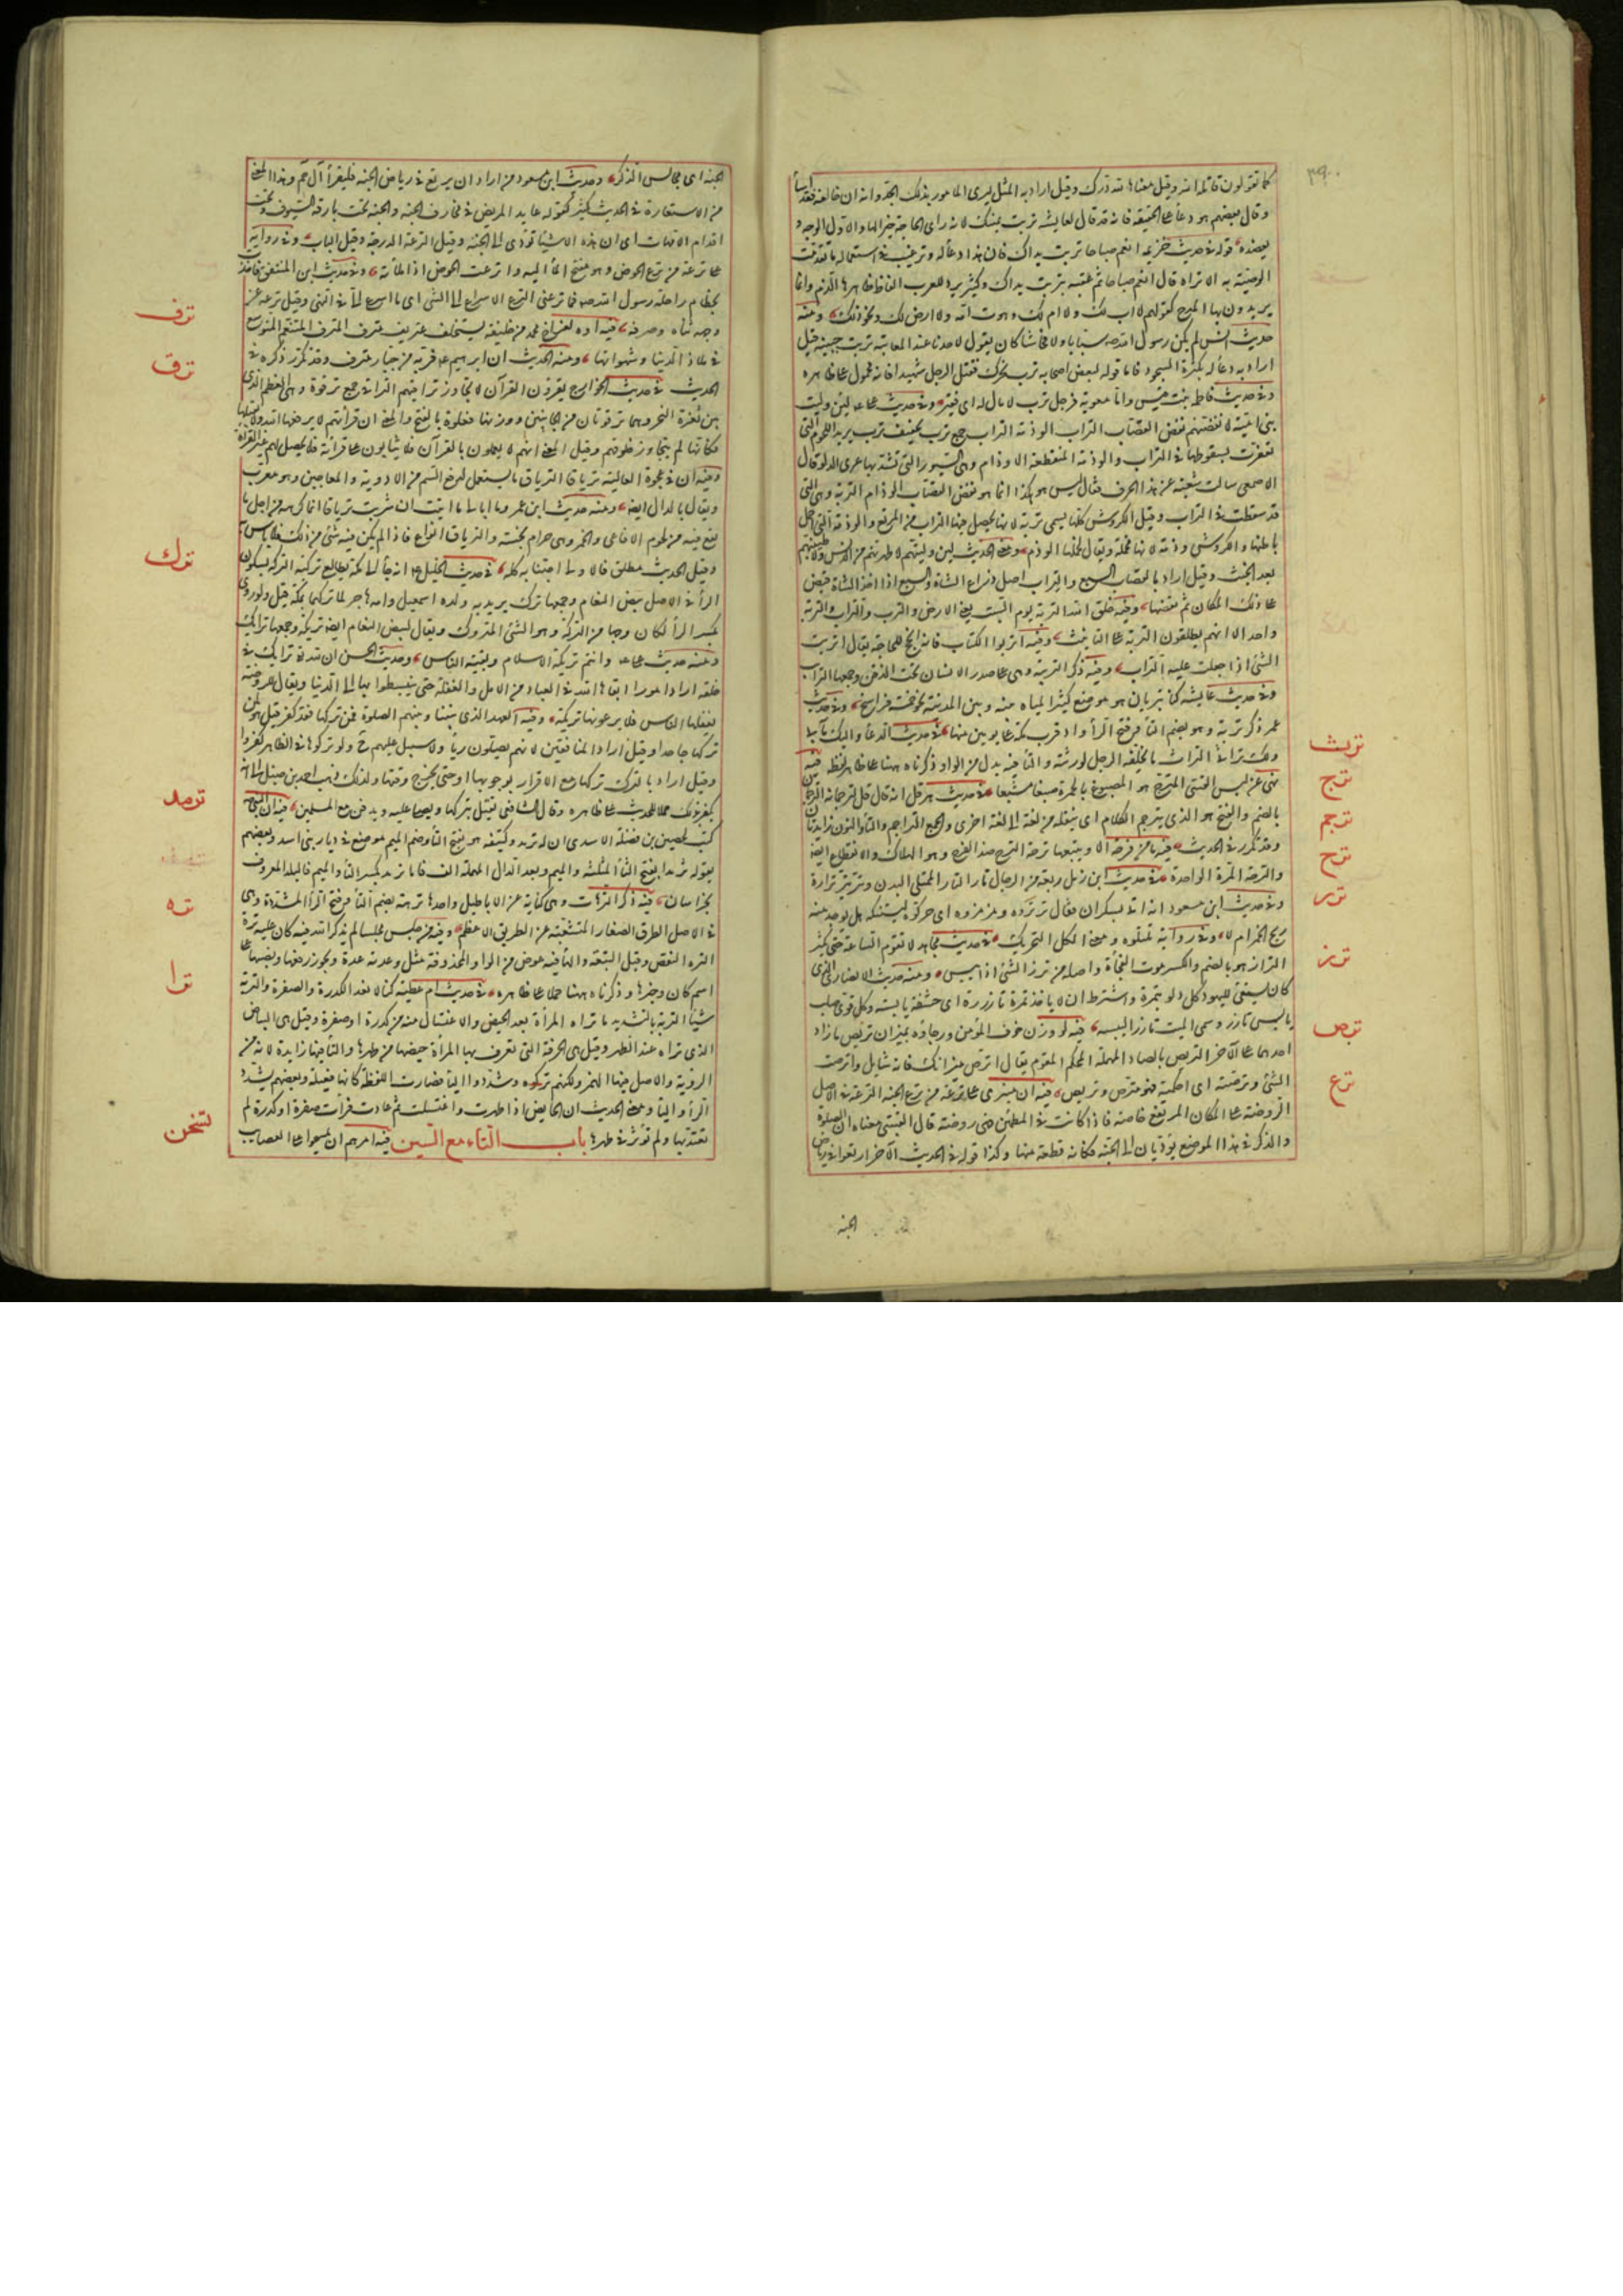 كما تقولون قاتله الله وقيل معناها لله درك وقيل اراد به المثل ليرى المأمور بذلك الجد وانه ان خالفه فقد اساء
وقال بعضهم هو دعاء على الحقيقة فانه قد قال لعايشة تربت يمينك لانه رأى الحاجة خيرا لها والاول الوجه و
يعضده قوله في حديث خزيمة انعم صباحا تربت يداك فان هذا دعاء له وترغيب في استعماله ما تقدمت
الوصية به الا تراه قال انعم صباحا ثم عقبه بتربت يداك وكثيرا يرد للعرب الفاظ ظاهرها الذم وانما
يريدون بها المدح كقولهم لا اب لك ولا ام لك وهوت امه ولا ارض لك ونحو ذلك ومنه
حديث انس لم يكن رسول الله صه سبابا ولا فحاشا كان يقول لاحدنا عند المعاتبة ترب جبينه قيل
اراد به دعاء له بكثرة السجود فاما قوله لبعض اصحابه ترب نحرك فقتل الرجل شهيدا فانه محمول على ظاهره
وفي حديث فاطمة بنت قيس واما معوية فرجل ترب لا مال له اي فقير وفي حديث علي لئن وليت
بني امية لانفضنهم نفض القصاب التراب الوذمة التراب جمع ترب تخفيف ترب يريد اللحوم التي
تعفرت بسقوطها في التراب والوذمة المنقطعة الاوذام وهي السيور التي تشد بها عرى الدلو قال
الاصمعي سالت شعبة عن هذا الحرف فقال ليس هو هكذا انما هو نفض القصاب الوذام التربة وهي التي
قد سقطت في التراب وقيل الكروش كلها يسمى تربة لانها يحصل فيها التراب من المرتع والوذمة التي اخمل
باطنها والكروش وذمة لانها مخملة ويقال لخملها الوذم ومعنى الحديث لئن وليتهم لاطهرنهم من الدنس ولاطيبنهم
بعد الخبث وقيل اراد بالقصاب السبع والتراب اصل ذراع الشاة والسبع اذا اخذ الشاة قبض
على ذلك المكان ثم نفضها وفيه خلق الله التربة يوم السبت يعني الارض والترب والتراب والتربة
واحد الا انهم يطلقون التربة على التانيث وفيه اتربوا الكتاب فانه انجح للحاجة يقال اتربت
الشئ اذا جعلت عليه التراب وفيه ذكر التريبة وهي اعلى صدر الانسان تحت الذقن وجمعها الترائب
وفي حديث عايشة كنا بتربان هو موضع كثير المياه بينه وبين المدينة نحو خمسة فراسخ وفي حديث
عمر ذكر تربة وهو بضم التاء وفتح الراء واد قرب مكة على يومين منها في حديث الدعاء واليك مآبي
ولك تراثي التراث ما يخلفه الرجل لورثته والتاء فيه بدل من الواو ذكرناه ههنا على ظاهر لفظه فيه
نهى عن لبس القسي المترج هو المصبوغ بالحمرة صبغا مشبعا في حديث هرقل انه قال لترجمانه الترجمان
بالضم والفتح هو الذي يترجم الكلام اي ينقله من لغة الى لغة اخرى والجمع التراجم والتاء والنون زايدتان
وقد تكرر في الحديث فيه ما من فرحة الا ويتبعها ترحة الترح ضد الفرح وهو الهلاك والانقطاع ايضا
والترحة المرة الواحدة في حديث ابن زمل ربعة من الرجال تار التار الممتلئ البدن وتر يتر ترارة
وفي حديث ابن مسعود انه اتي بسكران فقال ترتروه ومزمزوه اي حركوه ليستنكه هل يوجد منه
ريح الخمر ام لا وفي رواية تلتلوه ومعنى الكل التحريك في حديث مجاهد لا تقوم الساعة حتى يكثر
التراز هو بالضم والكسر موت الفجأة واصله من ترز الشئ اذا يبس ومنه حديث الانصاري الذي
كان يستقي لليهود كل دلو بتمرة واشترط ان لا ياخذ تمرة تارزة اي حشفة يابسة وكل قوي صلب
يابس تارز وسمي الميت تارزا ليبسه فيه لو وزن خوف المؤمن ورجاؤه بميزان تريص ما زاد
احدهما على الآخر التريص بالصاد المهملة المحكم المقوم يقال اترص ميزانك فانه شايل واترصت
الشئ وترصته اي احكمته فهو مترص وتريص فيه ان منبري على ترعة من ترع الجنة الترعة في الاصل
الروضة على المكان المرتفع خاصة فاذا كانت في المطمئن فهي روضة قال القتيبي معناه ان الصلوة
والذكر في هذا الموضع يؤديان الى الجنة فكانه قطعة منها وكذا قوله في الحديث الآخر ارتعوا في رياض
ترث
ترج
ترجم
ترح
ترر
ترز
ترص
ترع
الجنة
الجنة اي مجالس الذكر وحديث ابن مسعود من اراد ان يرتع في رياض الجنة فليقرأ آل حم وهذا المعنى
من الاستعارة في الحديث كثير كقوله عايد المريض في مخارف الجنة والجنة تحت بارقة السيوف وتحت
اقدام الامهات اي ان هذه الاشياء تؤدي الى الجنة وقيل الترعة الدرجة وقيل الباب وفي رواية
على ترعة من ترع الحوض وهو مفتح الماء اليه واترعت الحوض اذا ملأته وفي حديث ابن المنتفق فاخذت
بخطام راحلة رسول الله صه فما ترعني الترع الاسراع الى الشئ اي ما اسرع الي في النهي وقيل ترعه عن
وجهه ثناه وصرفه فيه اوه لفراخ محمد من خليفة يستخلف عتريف مترف المترف المتنعم المتوسع
في ملاذ الدنيا وشهواتها ومنه الحديث ان ابرهيم ع فر به من جبار مترف وقد تكرر ذكره في
الحديث في حديث الخوارج يقرؤن القرآن لا يجاوز تراقيهم التراقي جمع ترقوة وهي العظم الذي
بين ثغرة النحر وهما ترقوتان من الجانبين ووزنها فعلوة بالفتح والمعنى ان قرأتهم لا يرفعها الله ولا يقبلها
فكانها لم يتجاوز حلوقهم وقيل المعنى انهم لا يعملون بالقرآن فلا يثابون على قرأته فلا يحصل لهم غير القرأة
وفيه ان في عجوة العالية ترياقا الترياق ما يستعمل لدفع السم من الادوية والمعاجين وهو معرب
ويقال بالدال ايضا ومنه حديث ابن عمرو ما ابالي ما اتيت ان شربت ترياقا انما كرهه من اجل ما
يقع فيه من لحوم الافاعي والخمر وهي حرام نجسة والترياق انواع فاذا لم يكن فيه شئ من ذلك فلا بأس به
وقيل الحديث مطلق فالاولى اجتنابه كله في حديث الخليل ع انه جاء الى مكة يطالع تركته التركة بسكون
الراء في الاصل بيض النعام وجمعها ترك يريد به ولده اسمعيل وامه هاجر لما تركهما بمكة قيل ولو روي
بكسر الراء لكان وجها من التركة وهو الشئ المتروك ويقال لبيض النعام ايضا تريكة وجمعها ترائك
ومنه حديث علي وانتم تريكة الاسلام وبقية الناس وحديث الحسن ان لله تعالى ترائك في
خلقه اراد امورا ابقاها الله في العباد من الامل والغفلة حتى ينبسطوا بها الى الدنيا ويقال للروضة
يغفلها الناس فلا يرعونها تريكة وفيه العهد الذي بيننا وبينهم الصلوة فمن تركها فقد كفر قيل هو لمن
تركها جاحدا وقيل اراد المنافقين لانهم يصلون رياء ولا سبيل عليهم ح ولو تركوها في الظاهر كفروا
وقيل اراد بالترك تركها مع الاقرار بوجوبها او حتى يخرج وقتها ولذلك ذهب احمد بن حنبل الى انه
يكفر بذلك حملا للحديث على ظاهره وقال الشافعي يقتل بتركها ويصلى عليه ويدفن مع المسلمين فيه ان النبي صه
كتب لحصين بن نضلة الاسدي ان له ترمد وكتيفة هو بفتح التاء وضم الميم موضع في ديار بني اسد وبعضهم
يقوله ثرمدا بفتح الثاء المثلثة والميم وبعد الدال المهملة الف فاما ترمذ بكسر التاء والميم فالبلد المعروف
بخراسان فيه ذكر الترهات وهي كناية عن الاباطيل واحدها ترهة بضم التاء وفتح الراء المشددة وهي
في الاصل الطرق الصغار المتشعبة عن الطريق الاعظم وفيه من جلس مجلسا لم يذكر الله فيه كان عليه ترة
الترة النقص وقيل التبعة والتاء فيه عوض من الواو المحذوفة مثل وعدته عدة ويجوز رفعها ونصبها على
اسم كان وخبرها وذكرناه ههنا حملا على ظاهره في حديث ام عطية كنا لا نعد الكدرة والصفرة والترية
شيأ الترية بالتشديد ما تراه المرأة بعد الحيض والاغتسال منه من كدرة او صفرة وقيل هي البياض
الذي تراه عند الطهر وقيل هي الخرقة التي تعرف بها المرأة حيضها من طهرها والتاء فيها زايدة لانه من
الرؤية والاصل فيها الهمز ولكنهم تركوه وشددوا الياء فصارت اللفظة كانها فعيلة وبعضهم يشدد
الراء والياء ومعنى الحديث ان الحايض اذا طهرت واغتسلت ثم عادت فرأت صفرة او كدرة لم
تعتد بها ولم تؤثر في طهرها باب التاء مع السين فيه امرهم ان يمسحوا على العصائب
ترف
ترق
ترك
ترمد
تره
ترا
تسخن